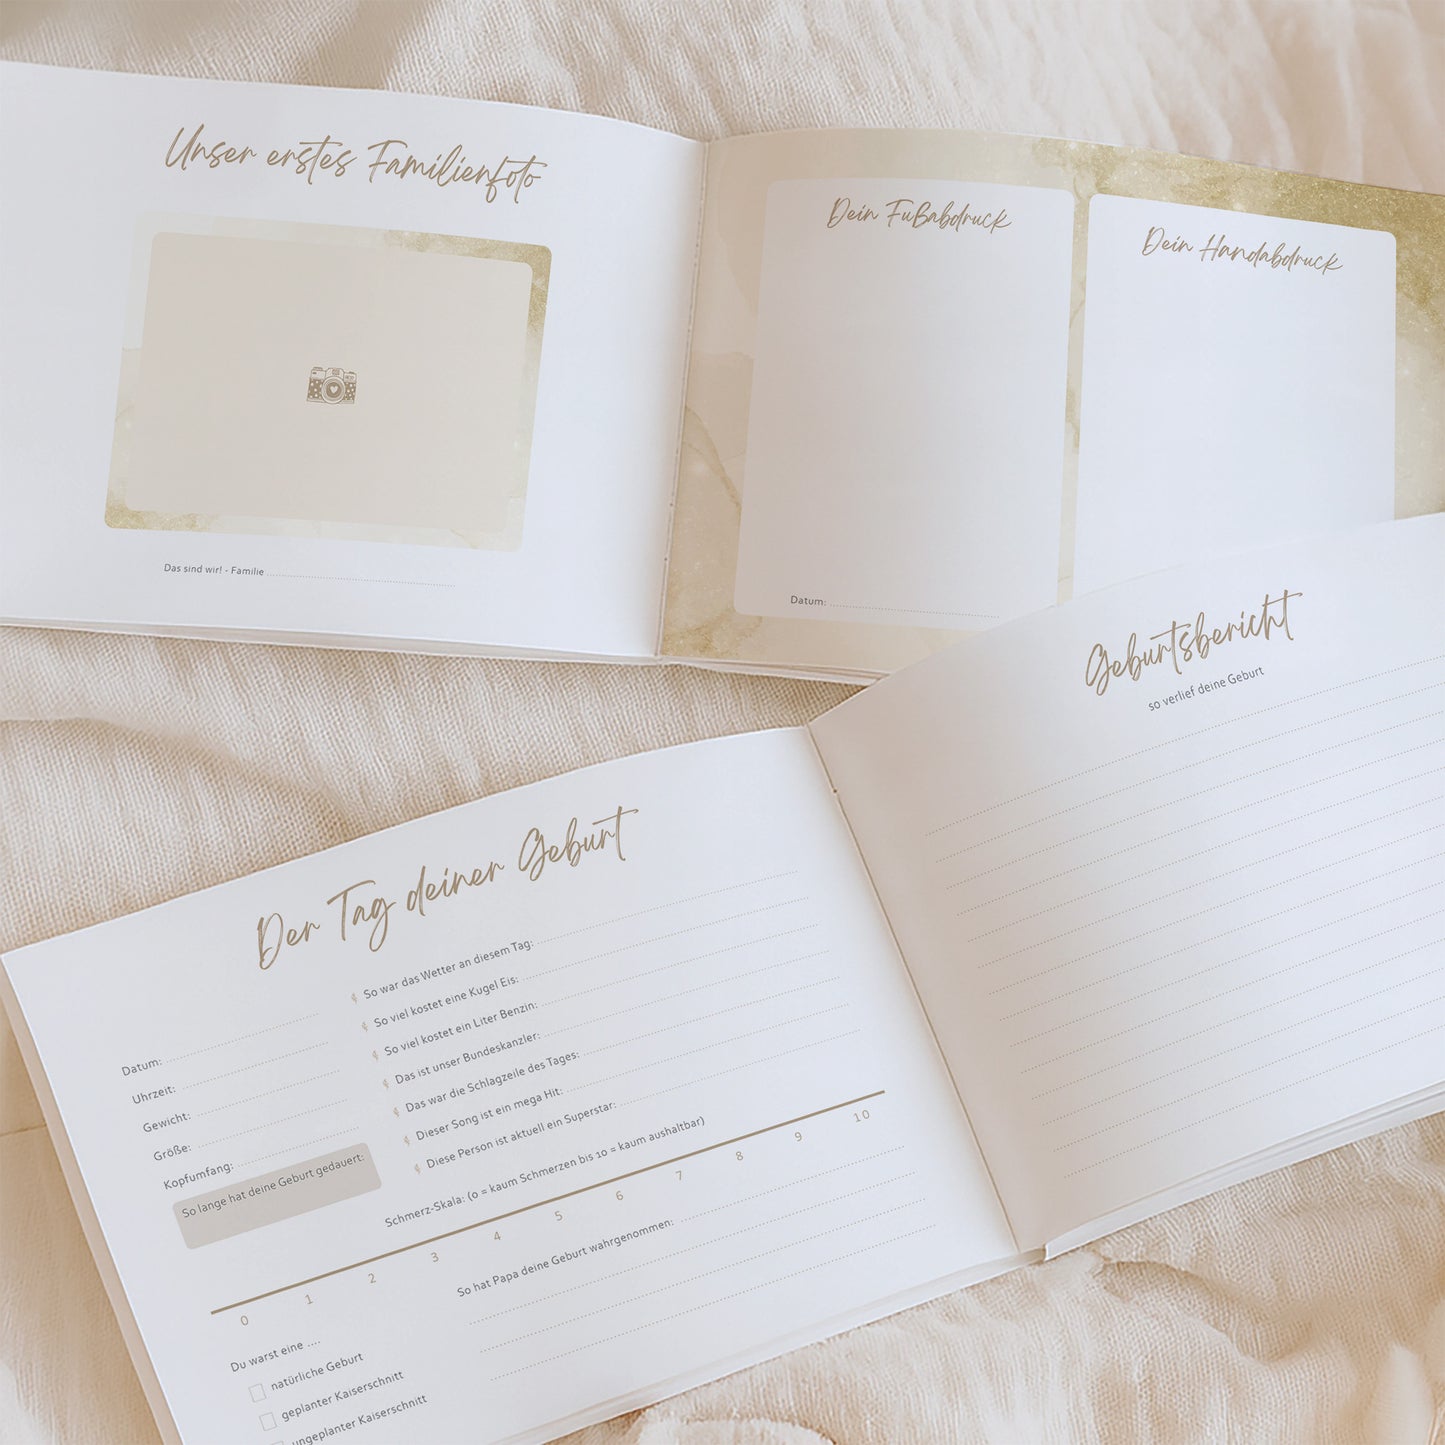 Unser erstes Familienfoto
Das sind wir! - Familie
Dein Fußabdruck
Datum:
Dein Handabdruck
Der Tag deiner Geburt
Datum:
Uhrzeit:
Gewicht:
Größe:
Kopfumfang:
So lange hat deine Geburt gedauert:
So war das Wetter an diesem Tag:
So viel kostet eine Kugel Eis:
So viel kostet ein Liter Benzin:
Das ist unser Bundeskanzler:
Das war die Schlagzeile des Tages:
Dieser Song ist ein mega Hit:
Diese Person ist aktuell ein Superstar:
Schmerz-Skala: (0 = kaum Schmerzen bis 10 = kaum aushaltbar)
0 1 2 3 4 5 6 7 8 9 10
Du warst eine ....
natürliche Geburt
geplanter Kaiserschnitt
ungeplanter Kaiserschnitt
So hat Papa deine Geburt wahrgenommen:
Geburtsbericht
so verlief deine Geburt